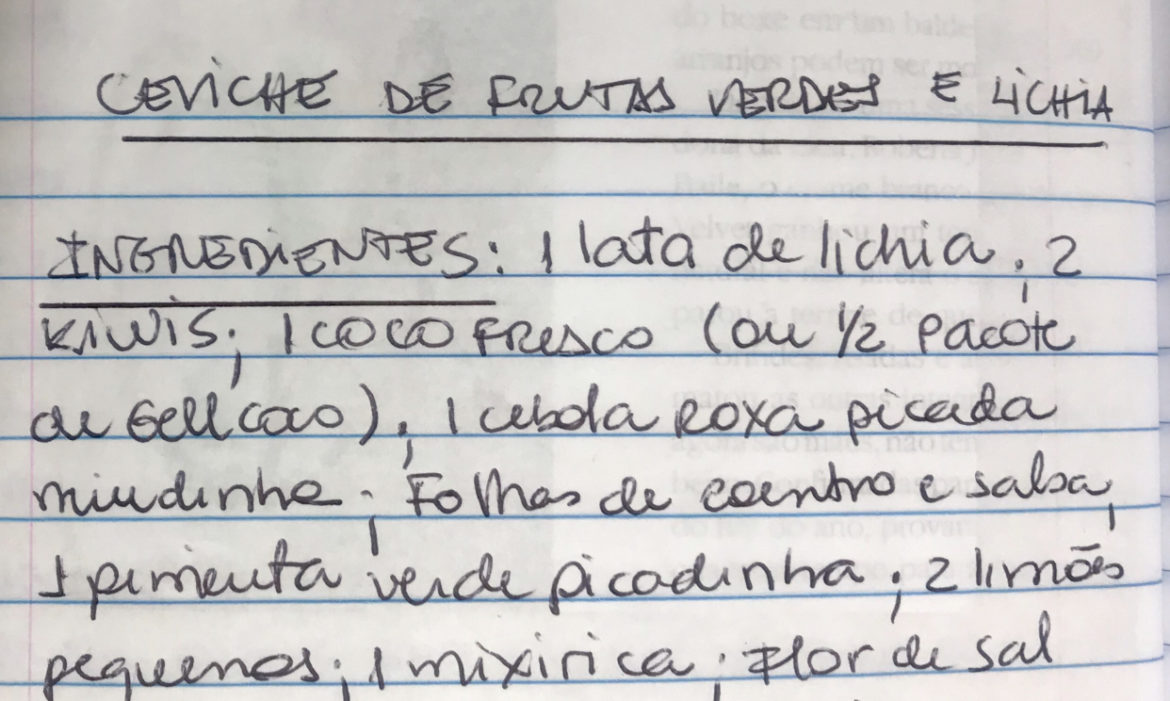 CEVICHE DE FRUTAS VERDES E LICHIA
INGREDIENTES: 1 lata de lichia; 2
KIWIS; 1 COCO FRESCO (ou 1/2 pacote
de Gell coco); 1 cebola ROXA picada
miudinha; Folhas de coentro e salsa,
1 pimenta verde picadinha; 2 limões
pequenos; 1 mixirica; Flor de sal